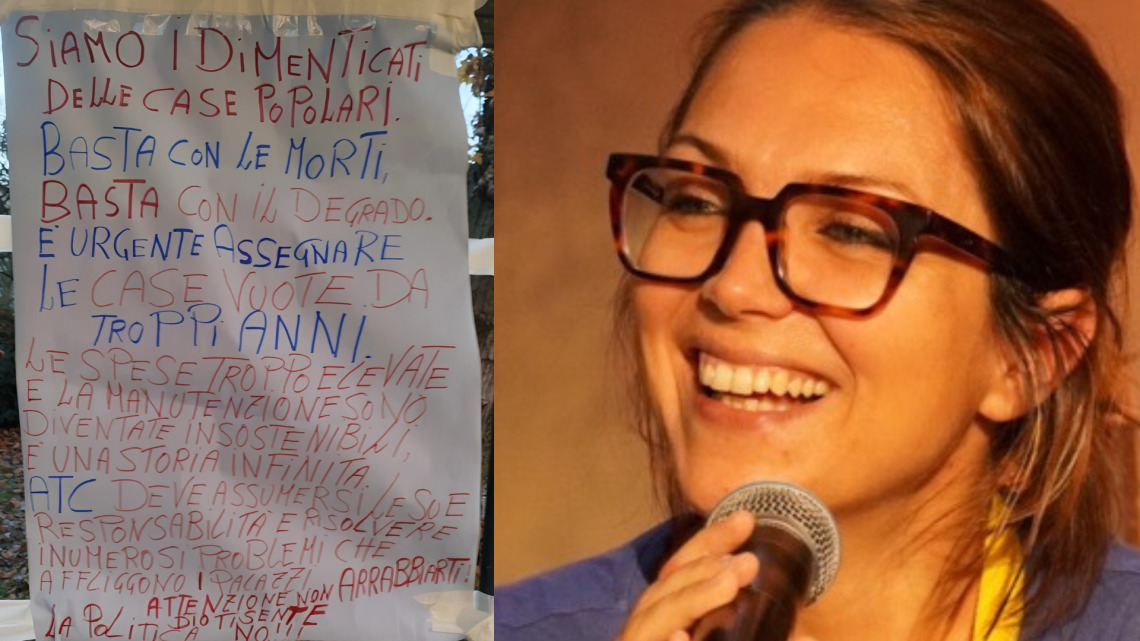 SiAMO I DiMENTICATi
DELLE CASE POPOLARI.
BASTA CON LE MORTI,
BASTA CON IL DEGRADO.
E' URGENTE ASSEGNARE
LE CASE VUOTE DA
TROPPI ANNI.
LE SPESE TROPPO ELEVATE
E LA MANUTENZIONE SONO
DIVENTATE INSOSTENIBILI,
E' UNA STORIA INFINITA.
ATC DEVE ASSUMERSI LE SUE
RESPONSABILITÀ E RISOLVERE
I NUMEROSI PROBLEMI CHE
AFFLIGGONO I PALAZZI.
ATTENZIONE NON ARRABBIARTI!
LA POLITICA NO!!!